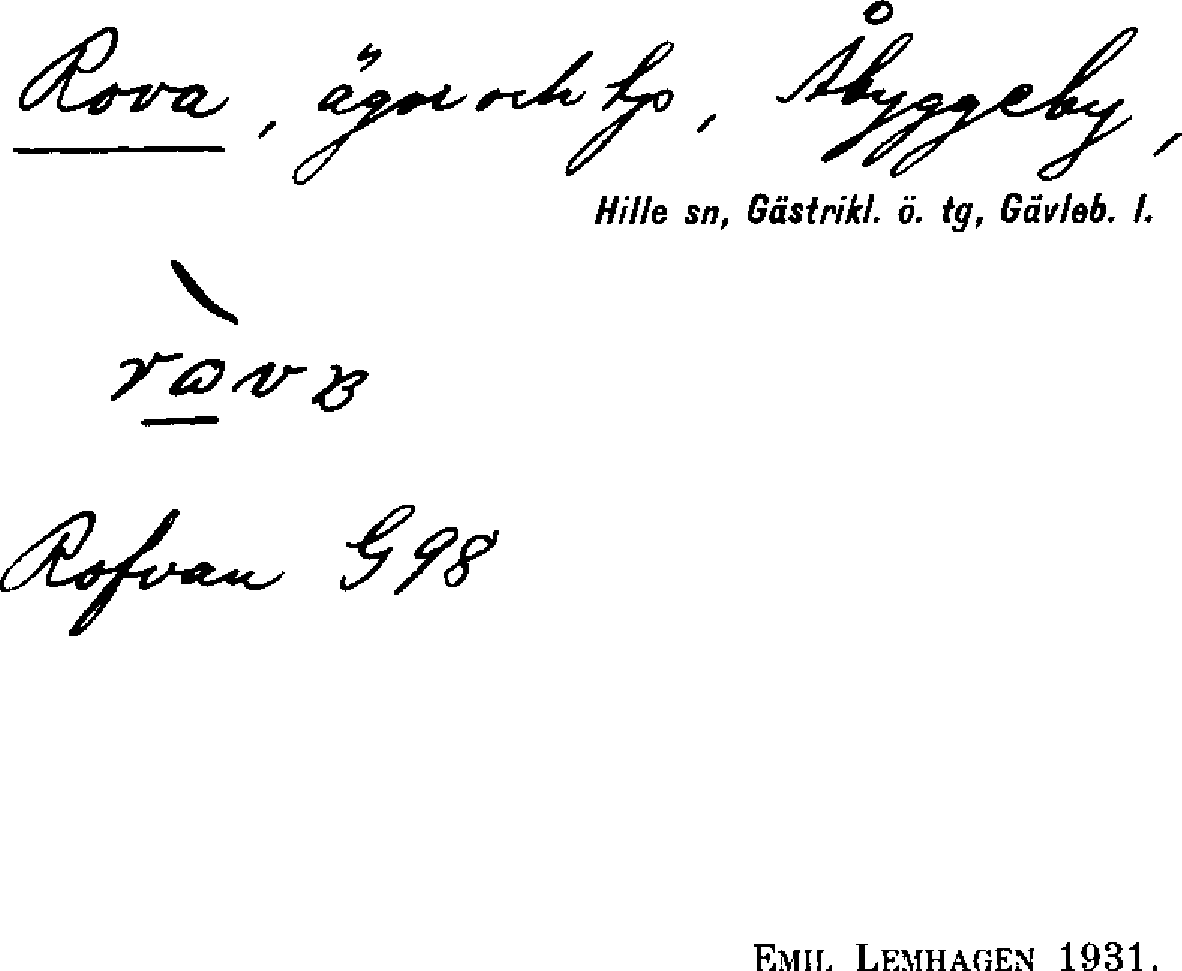 Rova, ägor och lp, Åbyggeby,
Hille sn, Gästrikl. ö. tg, Gävleb. l.
Rofvan G 98
EMIL LEMHAGEN 1931.